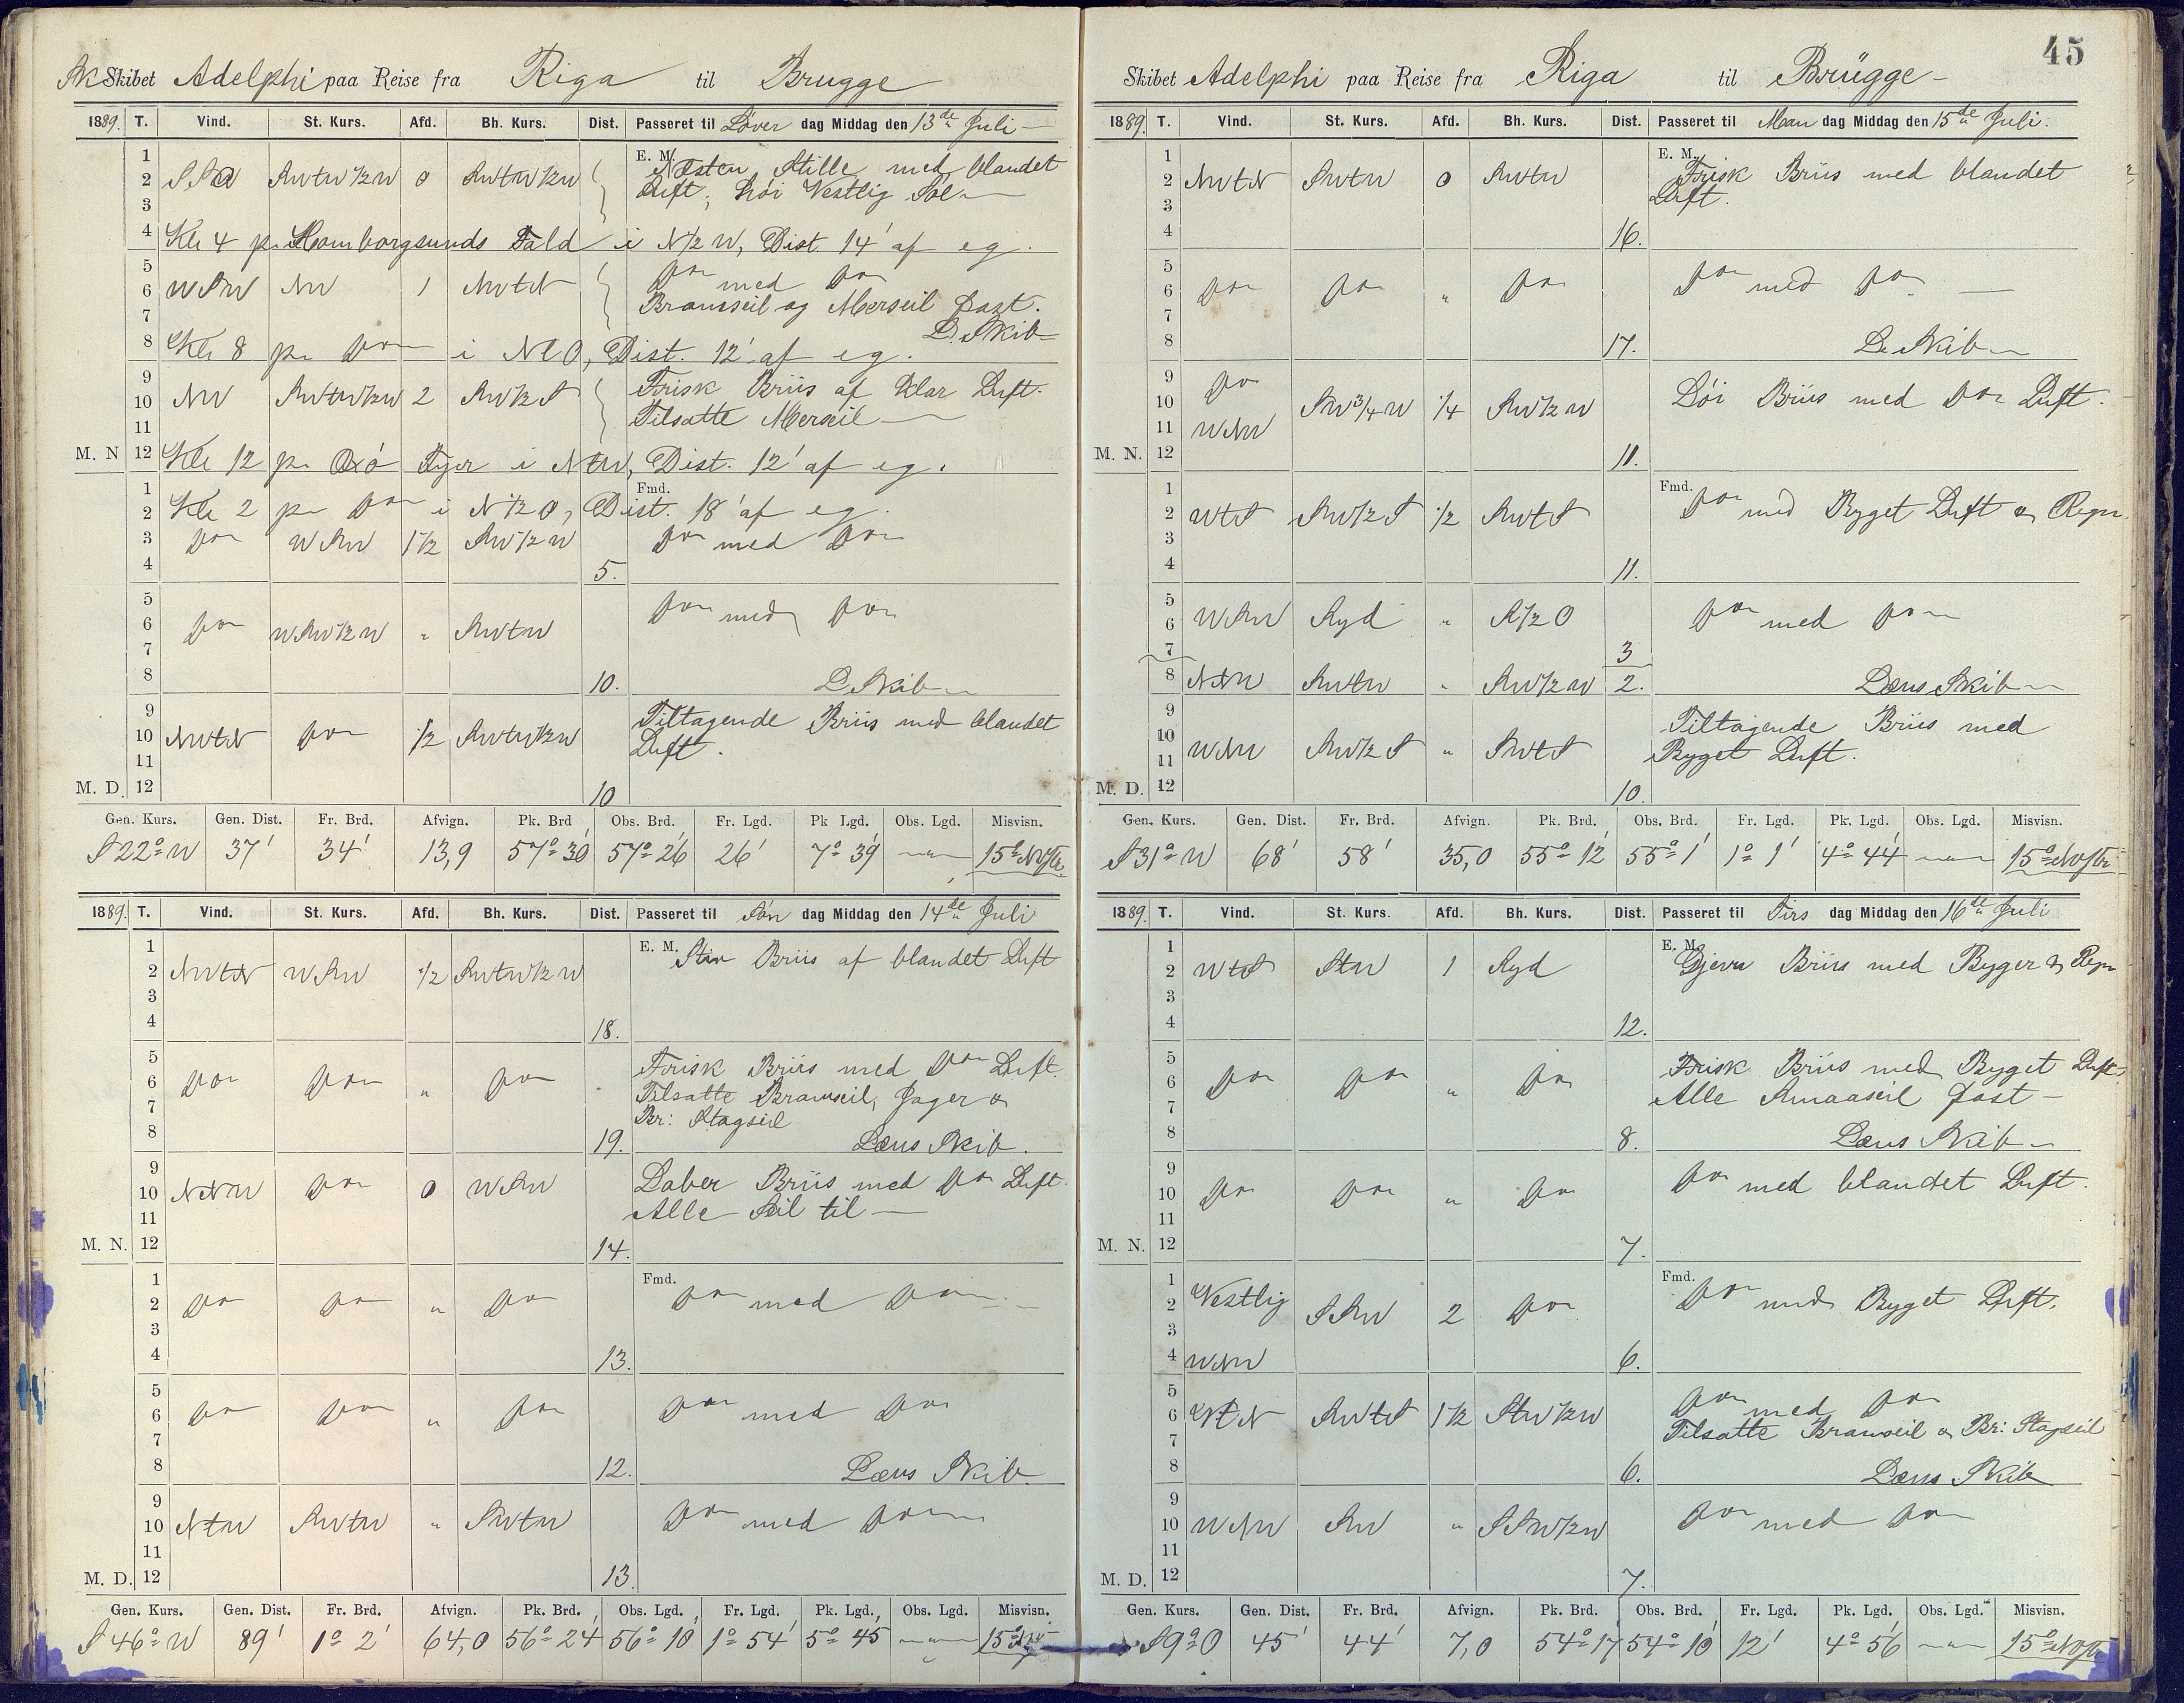 Sk Skibet Adelphi paa Reise fra Riga til Brugge
1889. T. Vind. St. Kurs. Afd. Bh. Kurs. Dist. Passeret til Løver dag Middag den 13de Juli
1
2 SSO SWtW½W 0 SWtW½W E. M. Næsten Stille med blandet
3 Luft, høi Vestlig Sø
4 Kl 4 p. Homborgsunds Fald i N½W, Dist. 14' af eg.
5
6 WSW NW 1 NWtN Do med Do
7 Bramseil og Merseil fast.
L. Skib
8 Kl 8 p. Do i NtO, Dist. 12' af eg.
9
10 NW SWtW½W 2 SW½S Frisk Briis af klar Luft.
11 Tilsatte Merseil
M. N 12 Kl 12 p. Oxö Fyr i NtW, Dist. 12' af eg.
1 Fmd.
2 Kl 2 p. Do i N½O, Dist. 18' af eg.
3 Do WSW 1½ SW½W Do med Do
4 5.
5
6 Do WSW½W " SWtW Do med Do
7
8 10. L. Skib
9
10 NWtN Do ½ SWtW½W Tiltagende Briis med blandet
11 Luft.
M. D. 12 10
Gen. Kurs. Gen. Dist. Fr. Brd. Afvign. Pk. Brd Obs. Brd. Fr. Lgd. Pk Lgd. Obs. Lgd. Misvisn.
S 22° W 37' 34' 13,9 57° 30' 57° 26' 26' 7° 39' 15°
1889. T. Vind. St. Kurs. Afd. Bh. Kurs. Dist. Passeret til Søn dag Middag den 14de Juli
1
2 NWtN WSW ½ SWtW½W E. M. Stiv Briis af blandet Luft
3
4 18.
5
6 Do Do " Do Frisk Briis med Do Luft.
7 Tilsatte Bramseil, Jager &
Br: Stagseil
8 19. Læns Skib.
9
10 NNW Do 0 WSW Laber Briis med Do Luft.
11 Alle Seil til
M. N. 12 14.
1 Fmd.
2 Do Do " Do Do med Do
3
4 13.
5
6 Do Do " Do Do med Do
7
8 12. Læns Skib
9
10 NtW SWtW " SWtW Do med Do
11
M. D. 12 13.
Gen. Kurs. Gen. Dist. Fr. Brd. Afvign. Pk. Brd. Obs. Lgd. Fr. Lgd. Pk. Lgd. Obs. Lgd. Misvisn.
S 46° W 89' 1° 2' 64,0 56° 24' 56° 10' 1° 54' 5° 45' 15°
45
Skibet Adelphi paa Reise fra Riga til Brügge
1889. T. Vind. St. Kurs. Afd. Bh. Kurs. Dist. Passeret til Man dag Middag den 15de Juli.
1
2 NWtN SWtW 0 SWtW E. M. Frisk Briis med blandet
3 Luft.
4 16.
5
6 Do Do " Do Do med Do
7
8 17. L. Skib
9 Do
10 SW¾W ¼ SW½W Løi Briis med Do Luft.
11 WNW
M. N. 12 11.
1 Fmd.
2 WtS SW½S ½ SWtS Do med Byget Luft & Regn.
3
4 11.
5
6 WSW Syd " S½O Do med Do
7 3
8 NNW SWtW " SW½W 2. Læns Skib
9
10 Tiltagende Briis med
11 WNW SW½S " SWtS Byget Luft.
M. D. 12 10.
Gen. Kurs. Gen. Dist. Fr. Brd. Afvign. Pk. Brd. Obs. Brd. Fr. Lgd. Pk. Lgd. Obs. Lgd. Misvisn.
S 31° W 68' 58' 35,0 55° 12' 55° 1' 1° 1' 4° 44' 15°
1889. T. Vind. St. Kurs. Afd. Bh. Kurs. Dist. Passeret til Tirs dag Middag den 16de Juli
1
2 WtS StW 1 Syd E. M. Gjevn Briis med Byger & Regn
3
4 12.
5
6 Do Do " Do Frisk Briis med Byget Luft.
7 Alle Smaaseil fast
8 8. Læns Skib
9
10 Do Do " Do Do med blandet Luft.
11
M. N. 12 7.
1 Fmd.
2 Vestlig SSW 2 Do Do med Byget Luft.
3
4 WNW 6.
5
6 WtN SWtS 1½ StW½W Do med Do
7 Tilsatte Bramseil & Br: Stagseil
8 6. Læns Skib
9
10 WNW SW " SSW½W Do med Do
11
M. D. 12 7.
Gen. Kurs. Gen. Dist. Fr. Brd. Afvign. Pk. Brd. Obs. Brd. Fr. Lgd. Pk. Lgd. Obs. Lgd. Misvisn.
S 9° O 45' 44' 7,0 54° 17' 54° 10' 12' 4° 56' 15°